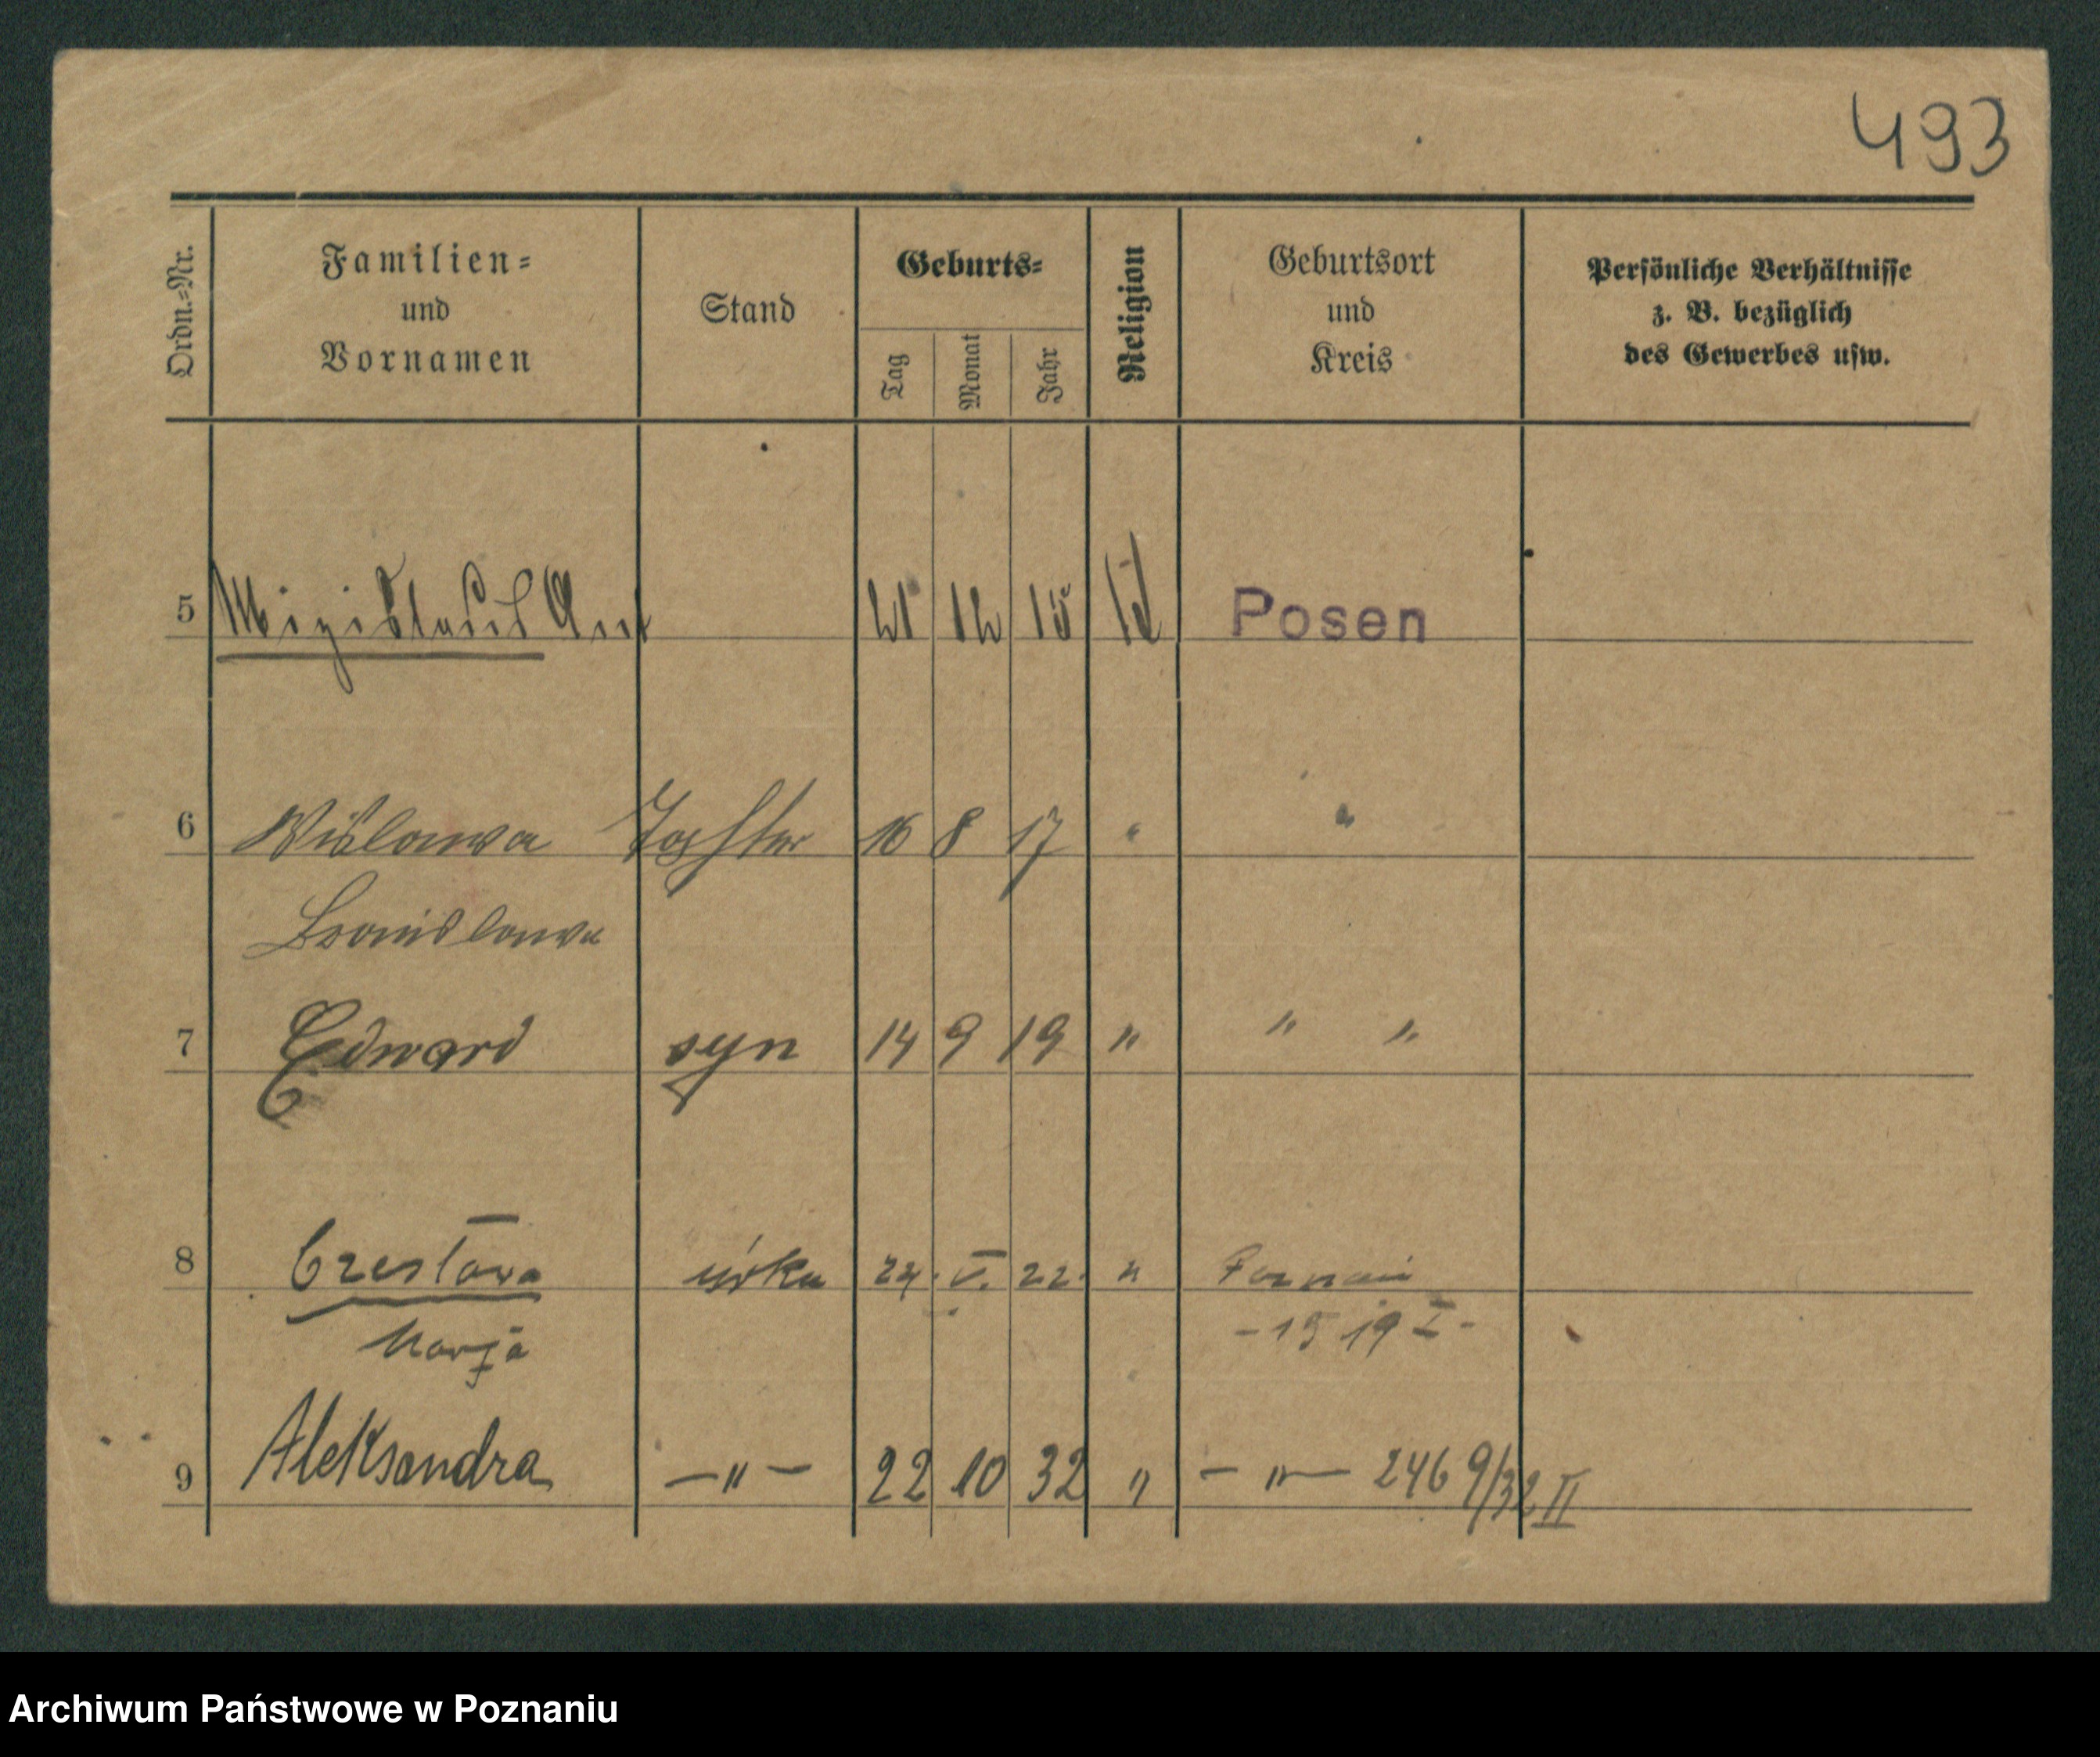 493
Ordn.-Nr. Familien- und Vornamen Stand Geburts- Tag Monat Jahr Religion Geburtsort und Kreis Persönliche Verhältnisse z. B. bezüglich des Gewerbes usw.
5 Mizislaus 21 12 15 Posen
6 Wislawa Tochter 16 8 17 " "
Bronislawa
7 Edward syn 14 9 19 " " "
8 Czesława córka 24. V. 22. " Poznań
Marja - 15 19 I -
9 Aleksandra — " — 22 10 32 " — " — 246 9/32 II
Archiwum Państwowe w Poznaniu